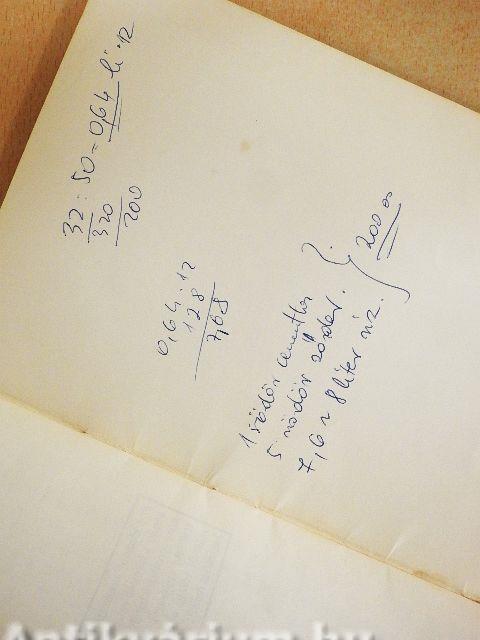 32 : 50 = 0,64 li · 12
320
200
0,64 · 12
128
7,68
1 vödör cementhez
5 vödör sóder.
7,6 ~ 8 liter víz.
200
Antikvárium.hu